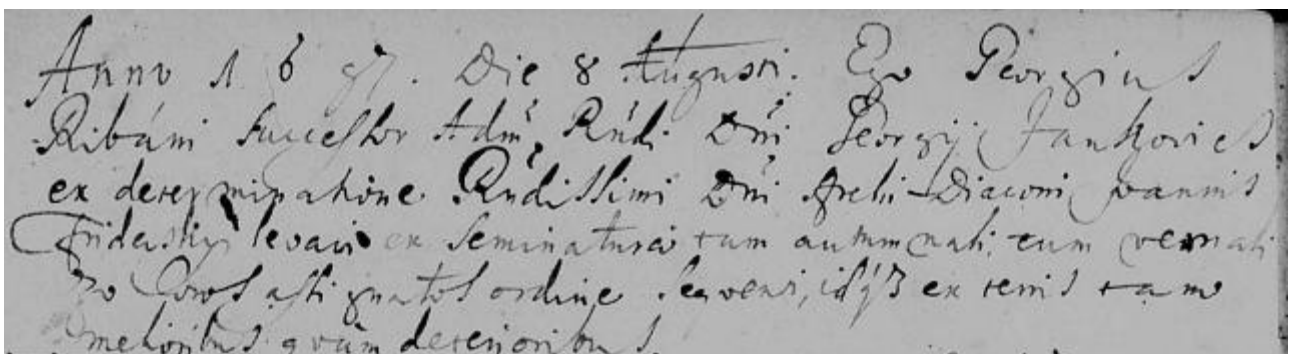 Anno 1697. Die 8 Augusti. Ego Georgius
Ribáni Successor Adm Rndi Dni Georgij Jankovics
ex determinatione Rndissimi Dni Archi-Diaconi Joannis
levavi ex Seminatura tam autumnali, tum vernali
assignatos ordine sequenti, idqz ex terris tam
melioribus quam deterioribus